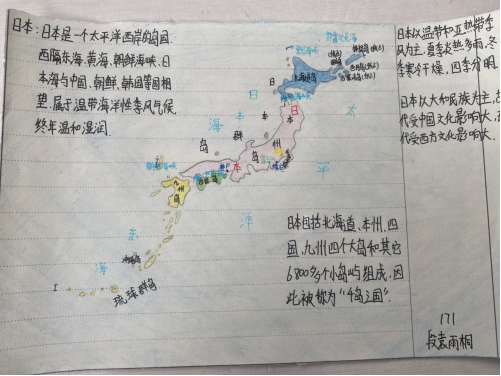 日本:日本是一个太平洋西岸的岛国
西隔东海、黄海、朝鲜海峡、日
本海与中国、朝鲜、韩国等国相
望,属于温带海洋性季风气候
终年温和湿润.
日本以温带和亚热带季
风为主,夏季炎热多雨,冬
季寒冷干燥,四季分明.
日本以大和民族为主,古
代受中国文化影响大,
代受西方文化影响大.
北海道岛
日
本
海
太
平
洋
日
本
群
岛
本
州
岛
四国岛
九
州
岛
东
海
琉球群岛
日本包括北海道、本州、四
国、九州四个大岛和其它
6800多个小岛屿组成,因
此被称为“千岛之国”.
171
段袁雨桐